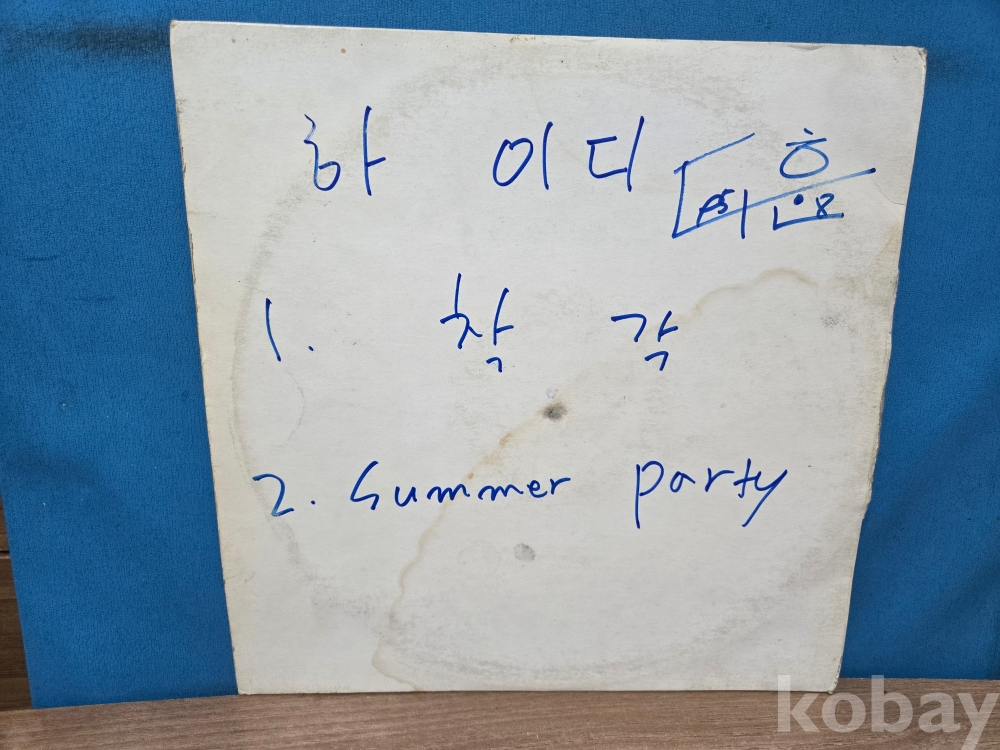 하이디
1. 착각
2. Summer party
kobay